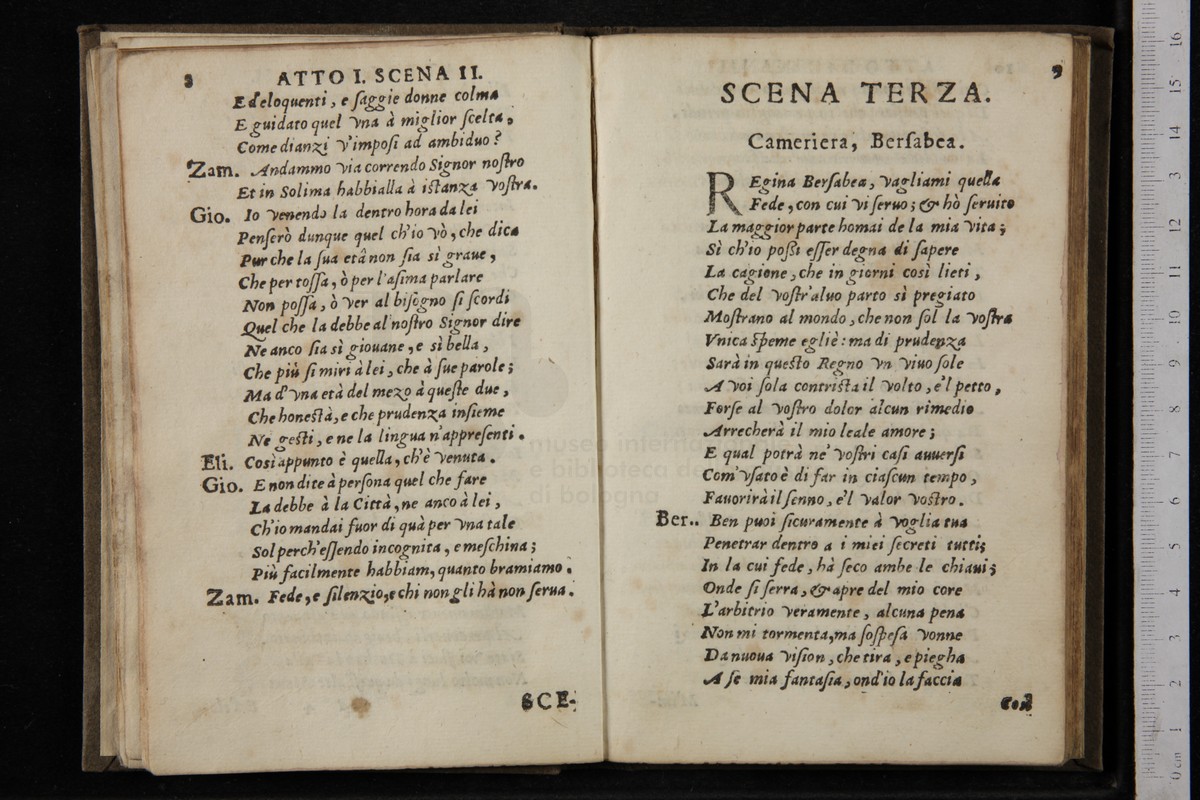 8 ATTO I. SCENA II.
E d'eloquenti, e ſaggie donne colma
E guidato quel vna à miglior ſcelta,
Come dianzi v'impoſi ad ambiduo?
Zam. Andammo via correndo Signor noſtro
Et in Solima habbialla à iſtanza voſtra.
Gio. Io venendo la dentro hora da lei
Penſerò dunque quel ch'io vò, che dica
Pur che la ſua età non ſia sì graue,
Che per toſſa, ò per l'aſima parlare
Non poſſa, ò ver al biſogno ſi ſcordi
Quel che la debbe al noſtro Signor dire
Ne anco ſia sì giouane, e sì bella,
Che più ſi miri à lei, che à ſue parole;
Ma d'vna età del mezo à queſte due,
Che honeſtà, e che prudenza inſieme
Ne geſti, e ne la lingua n'appreſenti.
Eli. Così appunto è quella, ch'è venuta.
Gio. E non dite à perſona quel che fare
La debbe à la Città, ne anco à lei,
Ch'io mandai fuor di quà per vna tale
Sol perch'eſſendo incognita, e meſchina;
Più facilmente habbiam, quanto bramiamo.
Zam. Fede, e ſilenzio, e chi non gli hà non ſerua.
SCE-
9
SCENA TERZA.
Cameriera, Berſabea.
REgina Berſabea, vagliami quella
Fede, con cui vi ſeruo; & hò ſeruito
La maggior parte homai de la mia vita;
Sì ch'io poſſi eſſer degna di ſapere
La cagione, che in giorni così lieti,
Che del voſtr'aluo parto sì pregiato
Moſtrano al mondo, che non ſol la voſtra
Vnica ſpeme egliè: ma di prudenza
Sarà in queſto Regno vn viuo ſole
A voi ſola contriſta il volto, e'l petto,
Forſe al voſtro dolor alcun rimedio
Arrecherà il mio leale amore;
E qual potrà ne' voſtri caſi auuerſi
Com'vſato è di far in ciaſcun tempo,
Fauorirà il ſenno, e'l valor voſtro.
Ber.. Ben puoi ſicuramente à voglia tua
Penetrar dentro a i miei ſecreti tutti;
In la cui fede, hà ſeco ambe le chiaui;
Onde ſi ſerra, & apre del mio core
L'arbitrio veramente, alcuna pena
Non mi tormenta, ma ſoſpeſa vonne
Da nuoua viſion, che tira, e piegha
A ſe mia fantaſia, ond'io la faccia
museo internazionale
e biblioteca de
di bologna